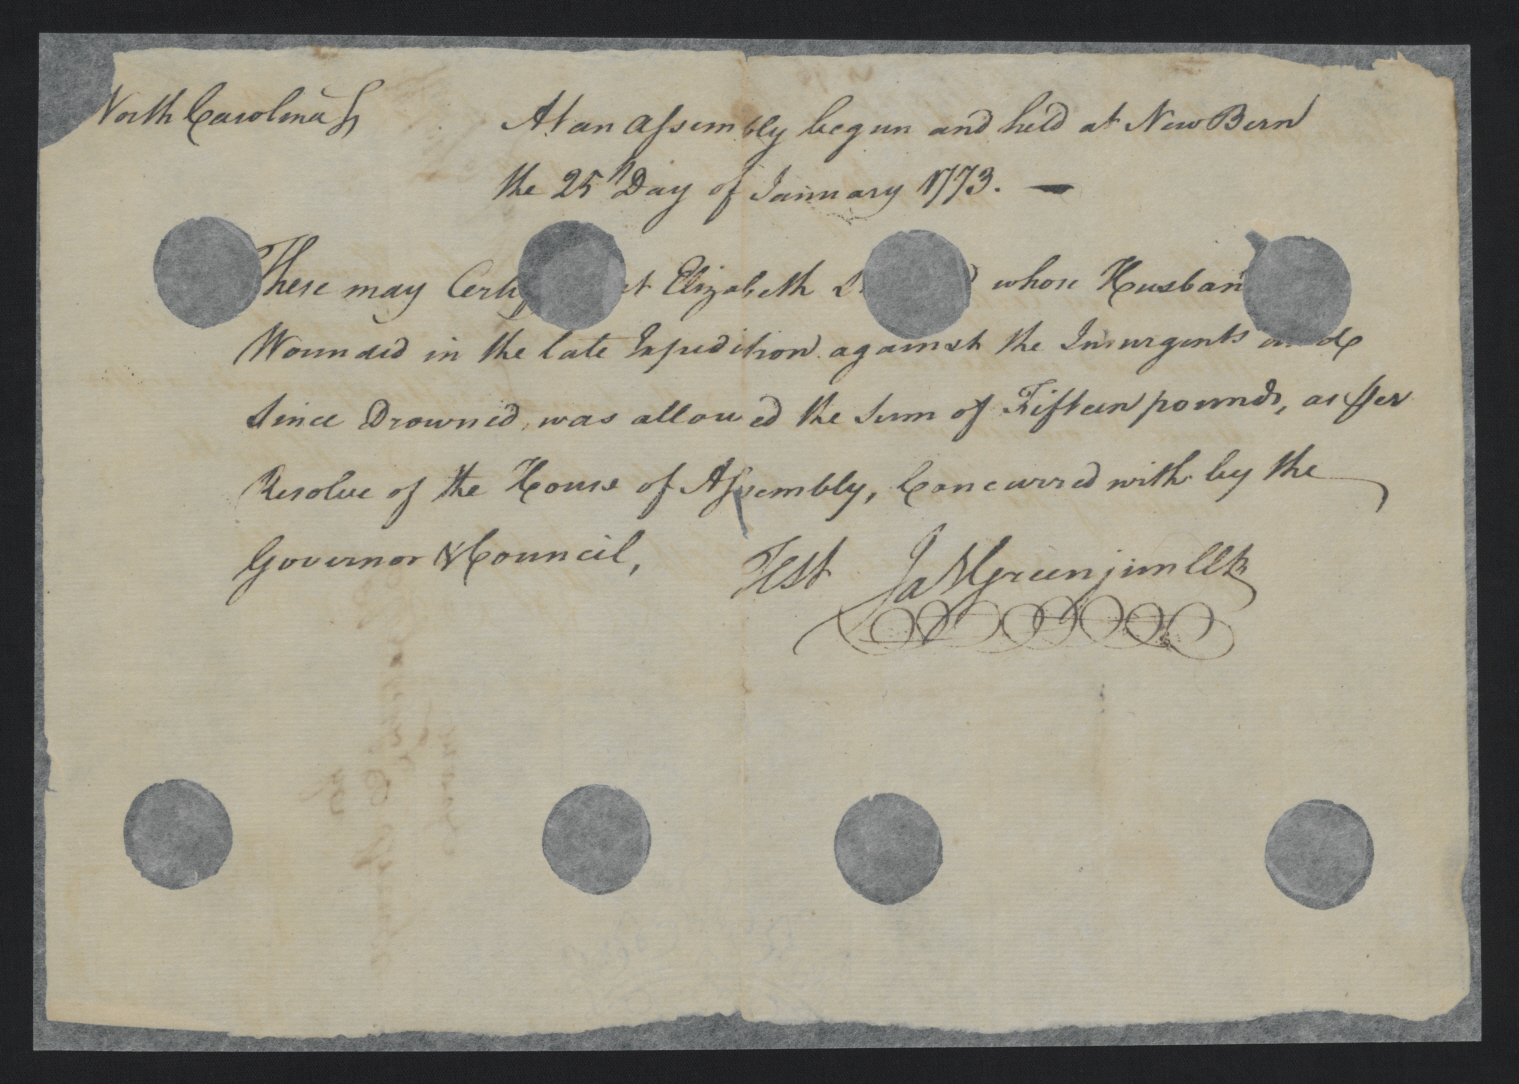 North Carolina Ss
At an Assembly begun and held at New Bern
the 25th Day of January 1773. —
These may Certif t Elizabeth whose Husban
Wounded in the late Expedition against the Insurgents and
since Drowned, was allowed the sum of Fifteen pounds, as per
Resolve of the House of Assembly, Concurred with by the
Governor & Council,
Test Ja Green jun Clk